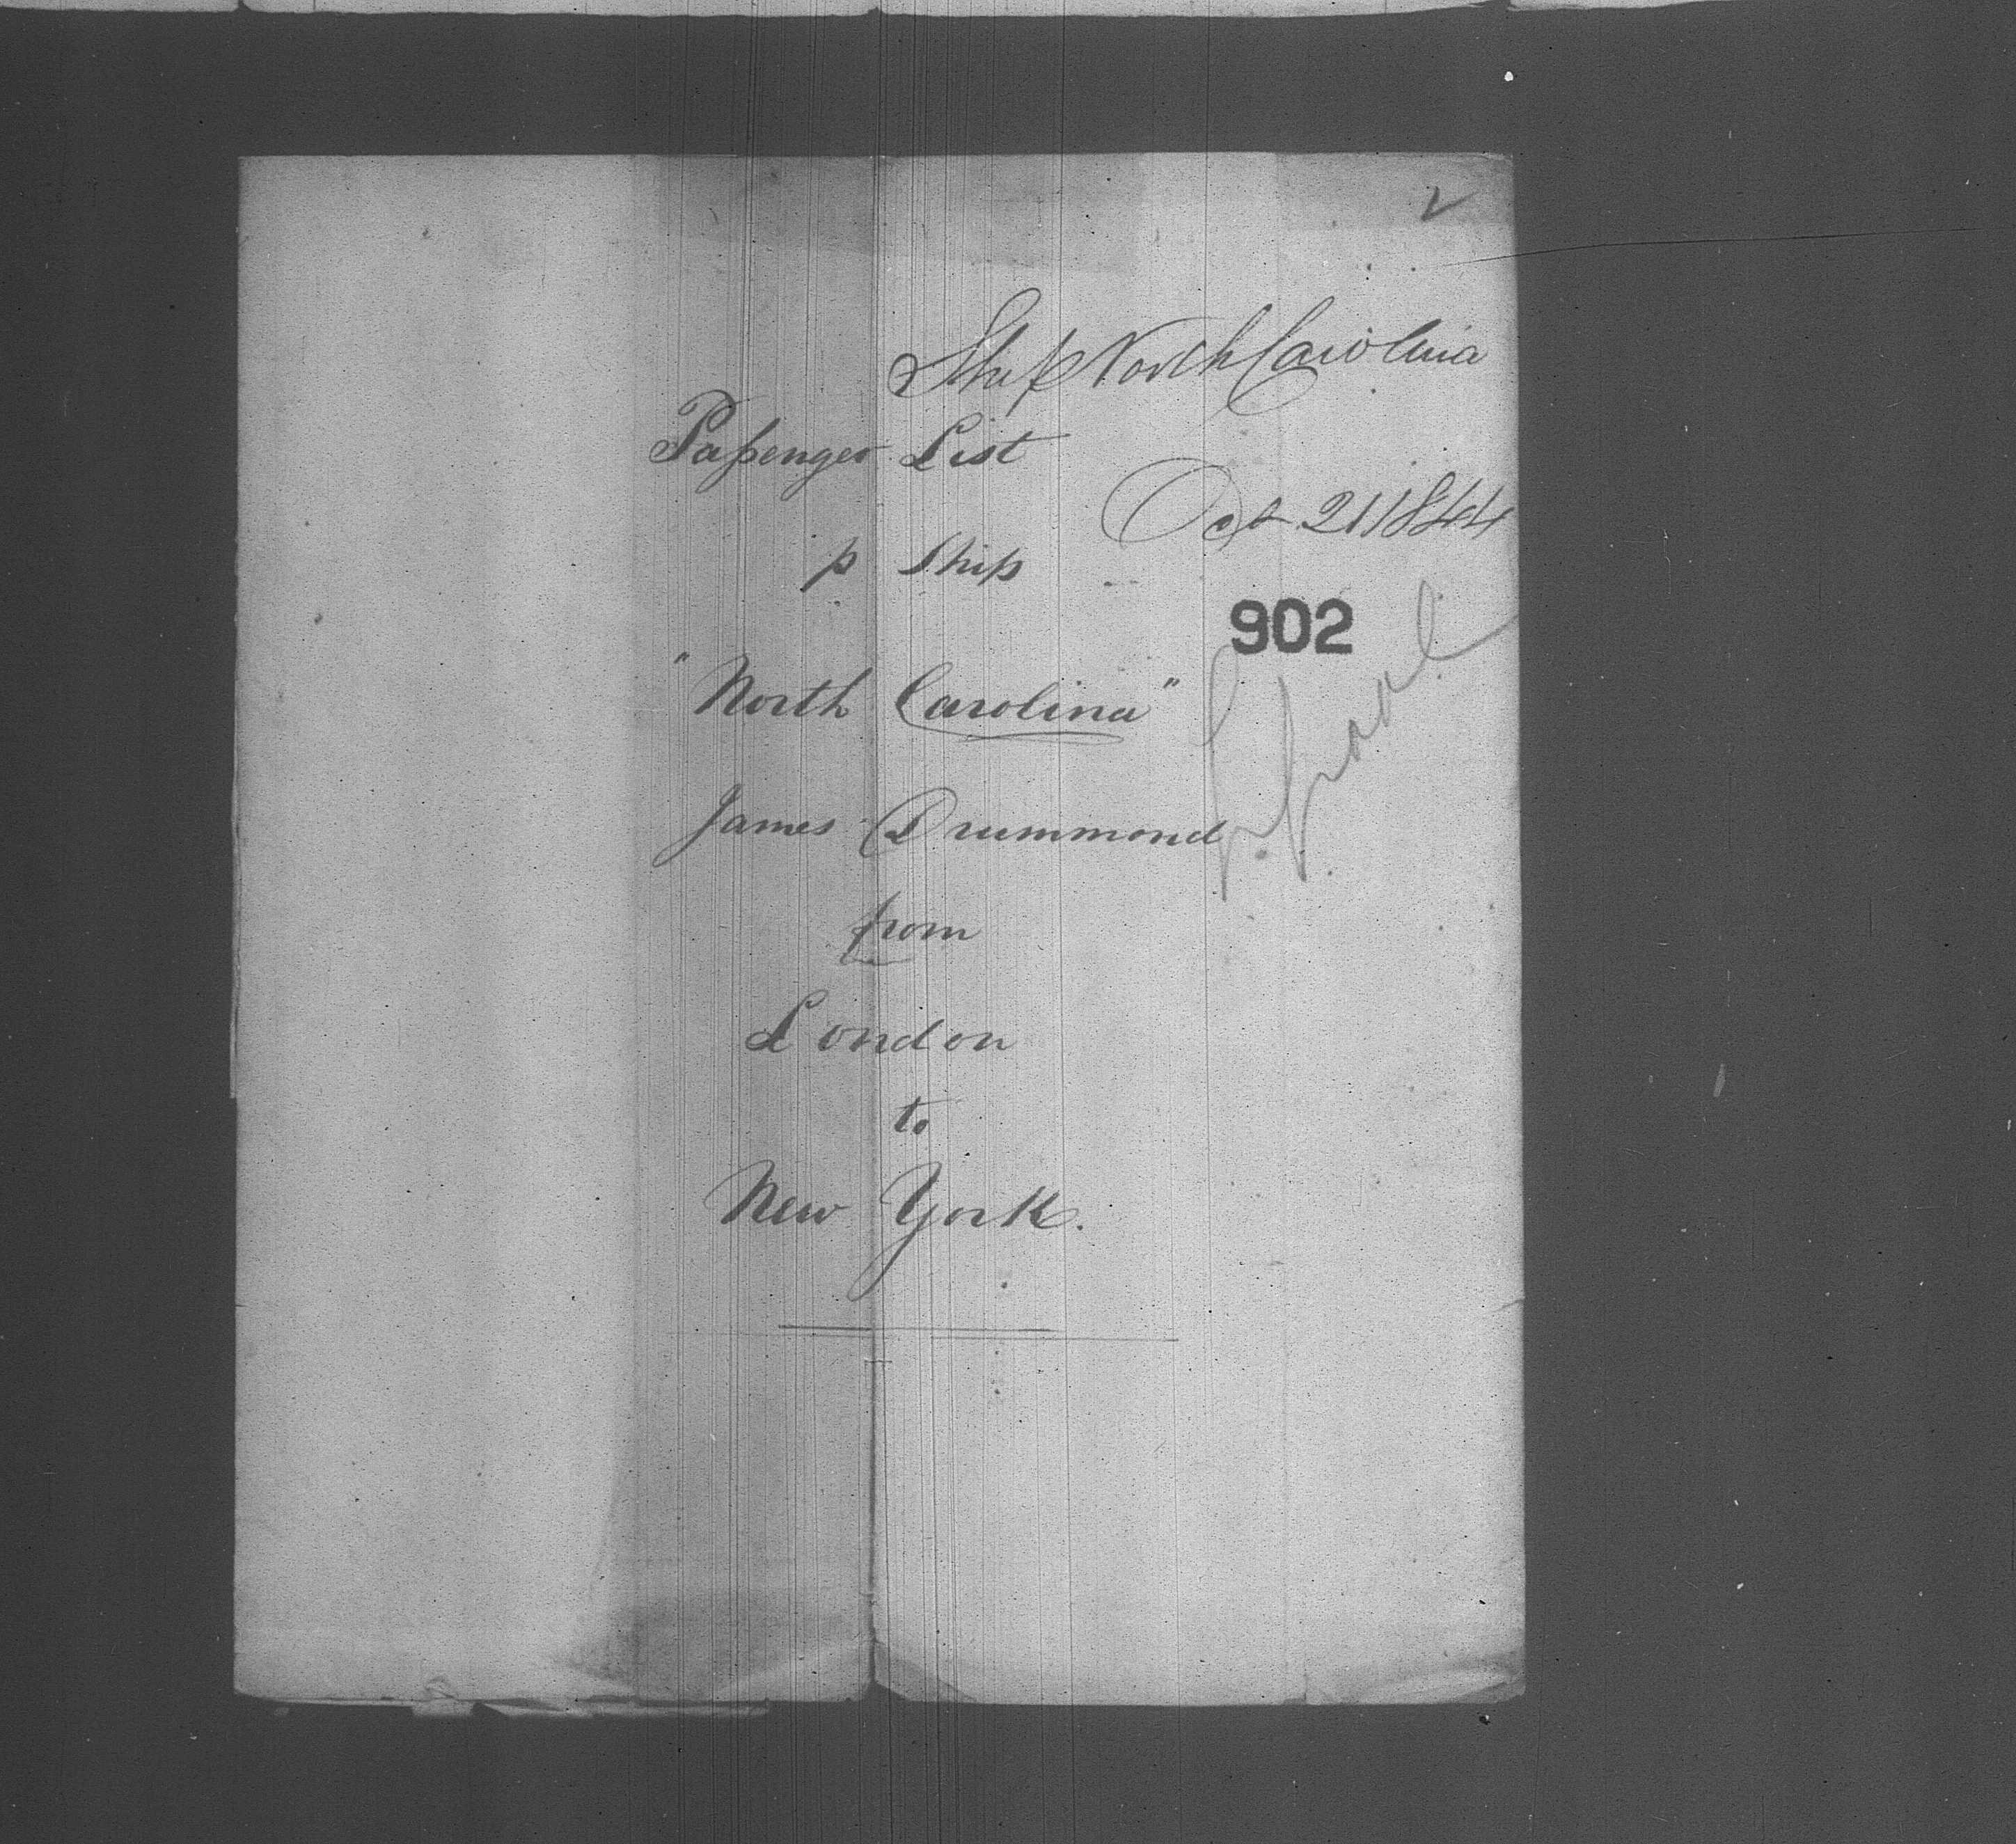 Ship North Carolina
Passenger List
Oct 21 1844
p Ship
902
"North Carolina"
James Drummond
from
London
to
New York.